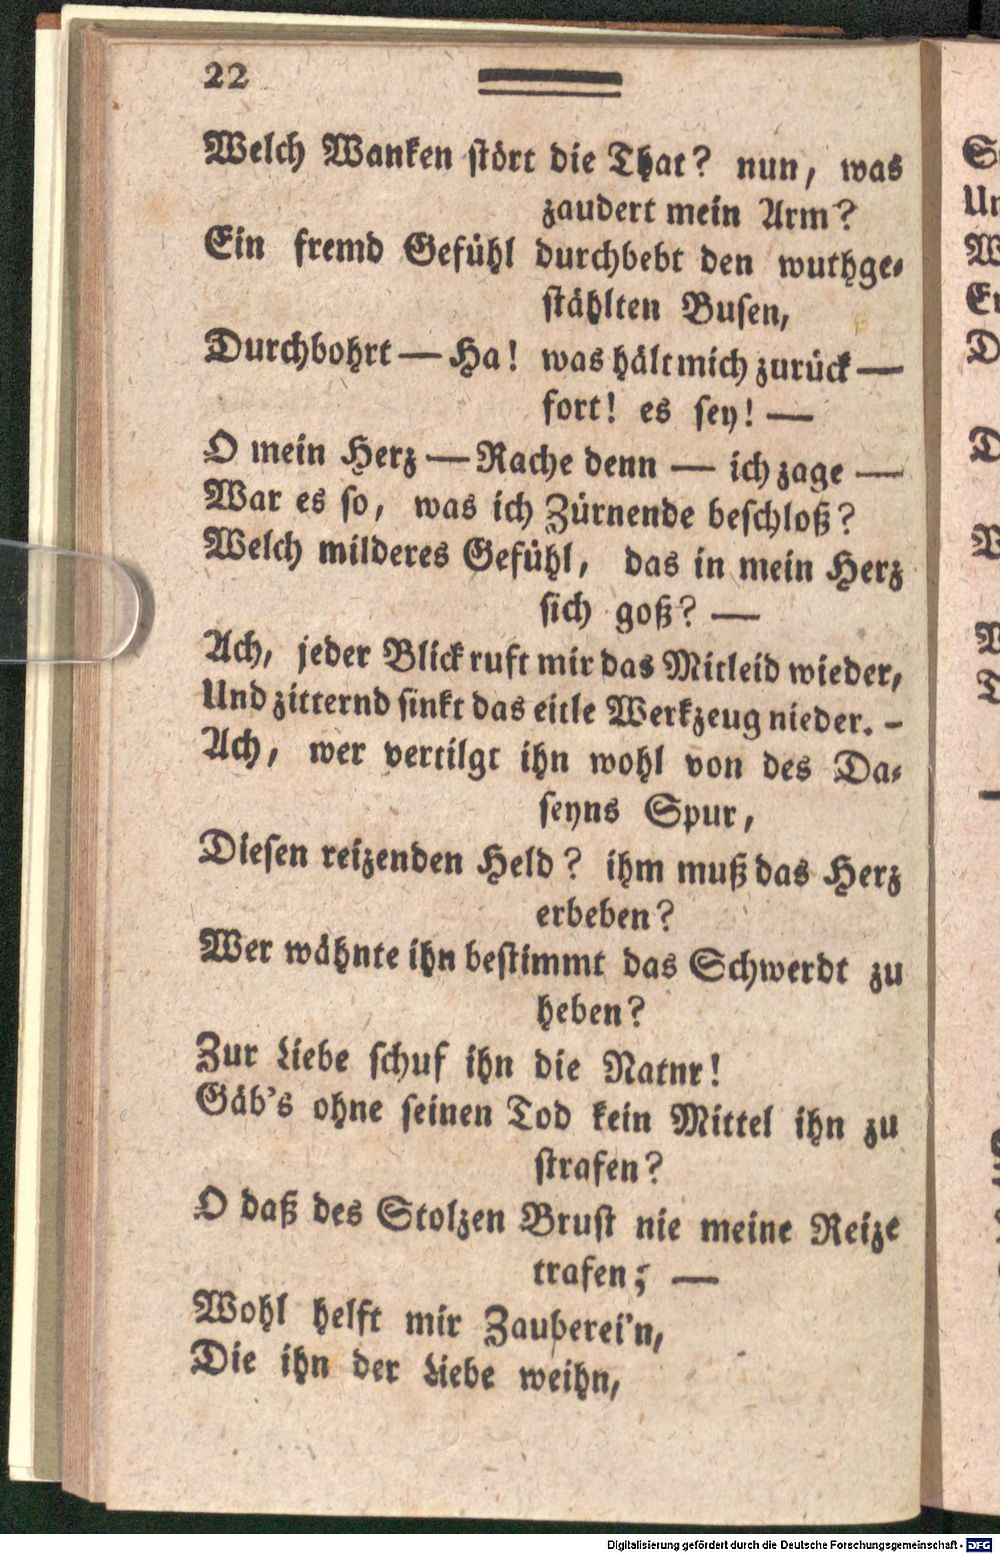 22
Welch Wanken ſtört die That? nun, was
zaudert mein Arm?
Ein fremd Gefühl durchbebt den wuthge⸗
ſtählten Buſen,
Durchbohrt — Ha! was hält mich zurück —
fort! es ſey! —
O mein Herz — Rache denn — ich zage —
War es ſo, was ich Zürnende beſchloß?
Welch milderes Gefühl, das in mein Herz
ſich goß? —
Ach, jeder Blick ruft mir das Mitleid wieder,
Und zitternd ſinkt das eitle Werkzeug nieder. –
Ach, wer vertilgt ihn wohl von des Da⸗
ſeyns Spur,
Dieſen reizenden Held? ihm muß das Herz
erbeben?
Wer wähnte ihn beſtimmt das Schwerdt zu
heben?
Zur Liebe ſchuf ihn die Natnr!
Gäb's ohne ſeinen Tod kein Mittel ihn zu
ſtrafen?
O daß des Stolzen Bruſt nie meine Reize
trafen; —
Wohl helft mir Zauberei'n,
Die ihn der Liebe weihn,
Digitalisierung gefördert durch die Deutsche Forschungsgemeinschaft - DFG